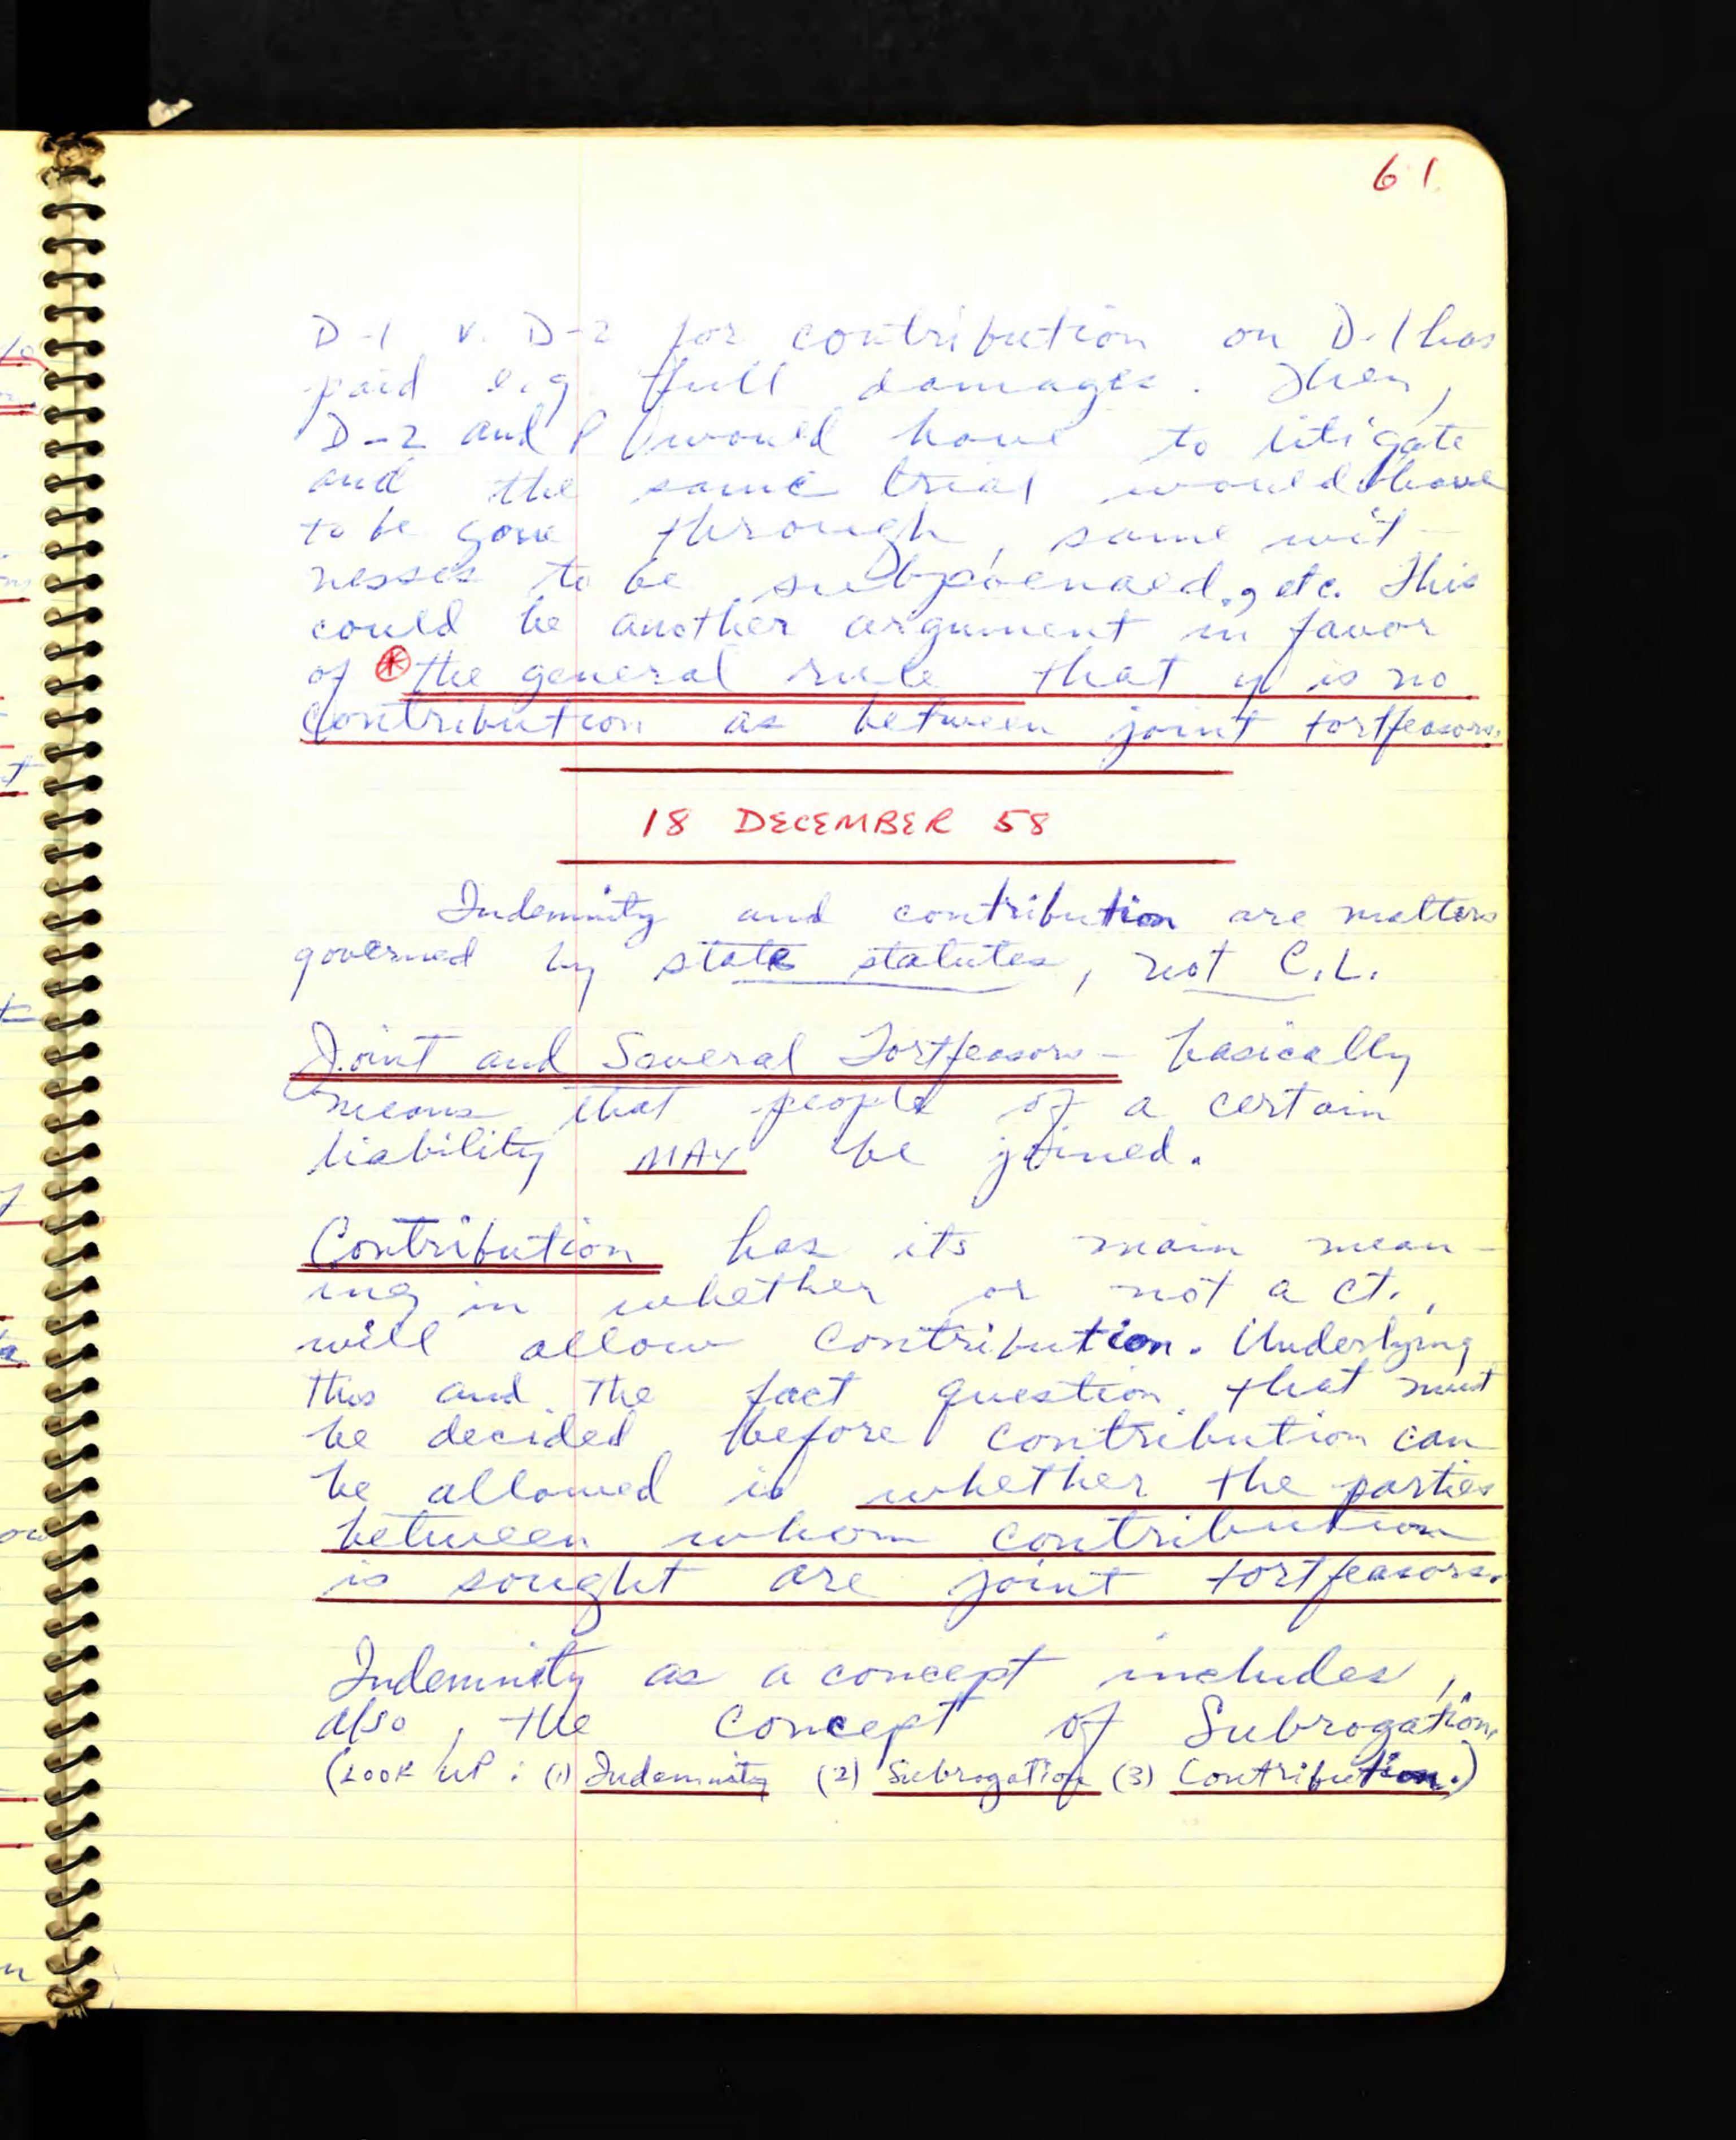 61
D-1 v. D-2 for contribution on D-1 has
paid e.g. full damages. Then,
D-2 and P would have to litigate
and the same trial would have
to be gone through, same wit-
nesses to be subpoenaed, etc. This
could be another argument in favor
of * the general rule that y is no
contribution as between joint tortfeasors.
18 DECEMBER 58
Indemnity and contribution are matters
governed by state statutes, not C.L.
Joint and Several Tortfeasors - basically
means that people of a certain
liability MAY be joined.
Contribution has its main mean-
ing in whether or not a ct.,
will allow contribution. Underlying
this and the fact question that must
be decided before contribution can
be allowed is whether the parties
between whom contribution
is sought are joint tortfeasors.
Indemnity as a concept includes,
also, the concept of Subrogation.
(LOOK UP: (1) Indemnity (2) Subrogation (3) Contribution.)